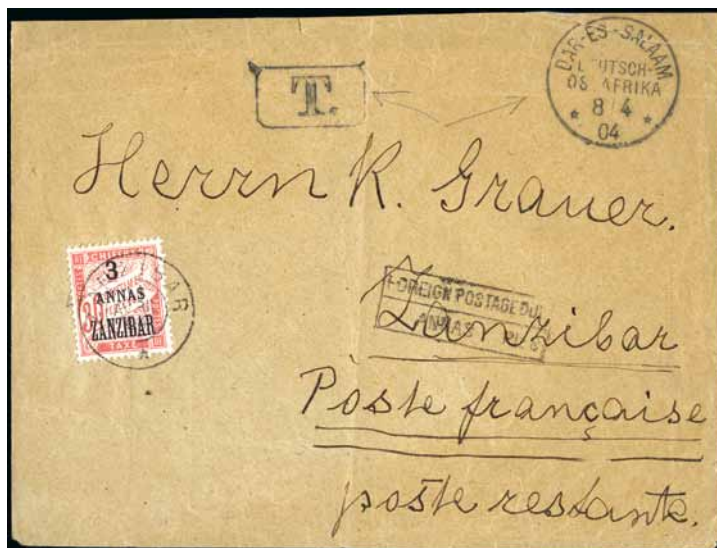 T.
DAR-ES-SALAAM
DEUTSCH-
OSTAFRIKA
8 4
04
Herrn K. Grauer.
CHIFFRE
3
ANNAS
30
ZANZIBAR
TAXE
FOREIGN POSTAGE DUE
ANNAS
Zanzibar
Poste française
poste restante.